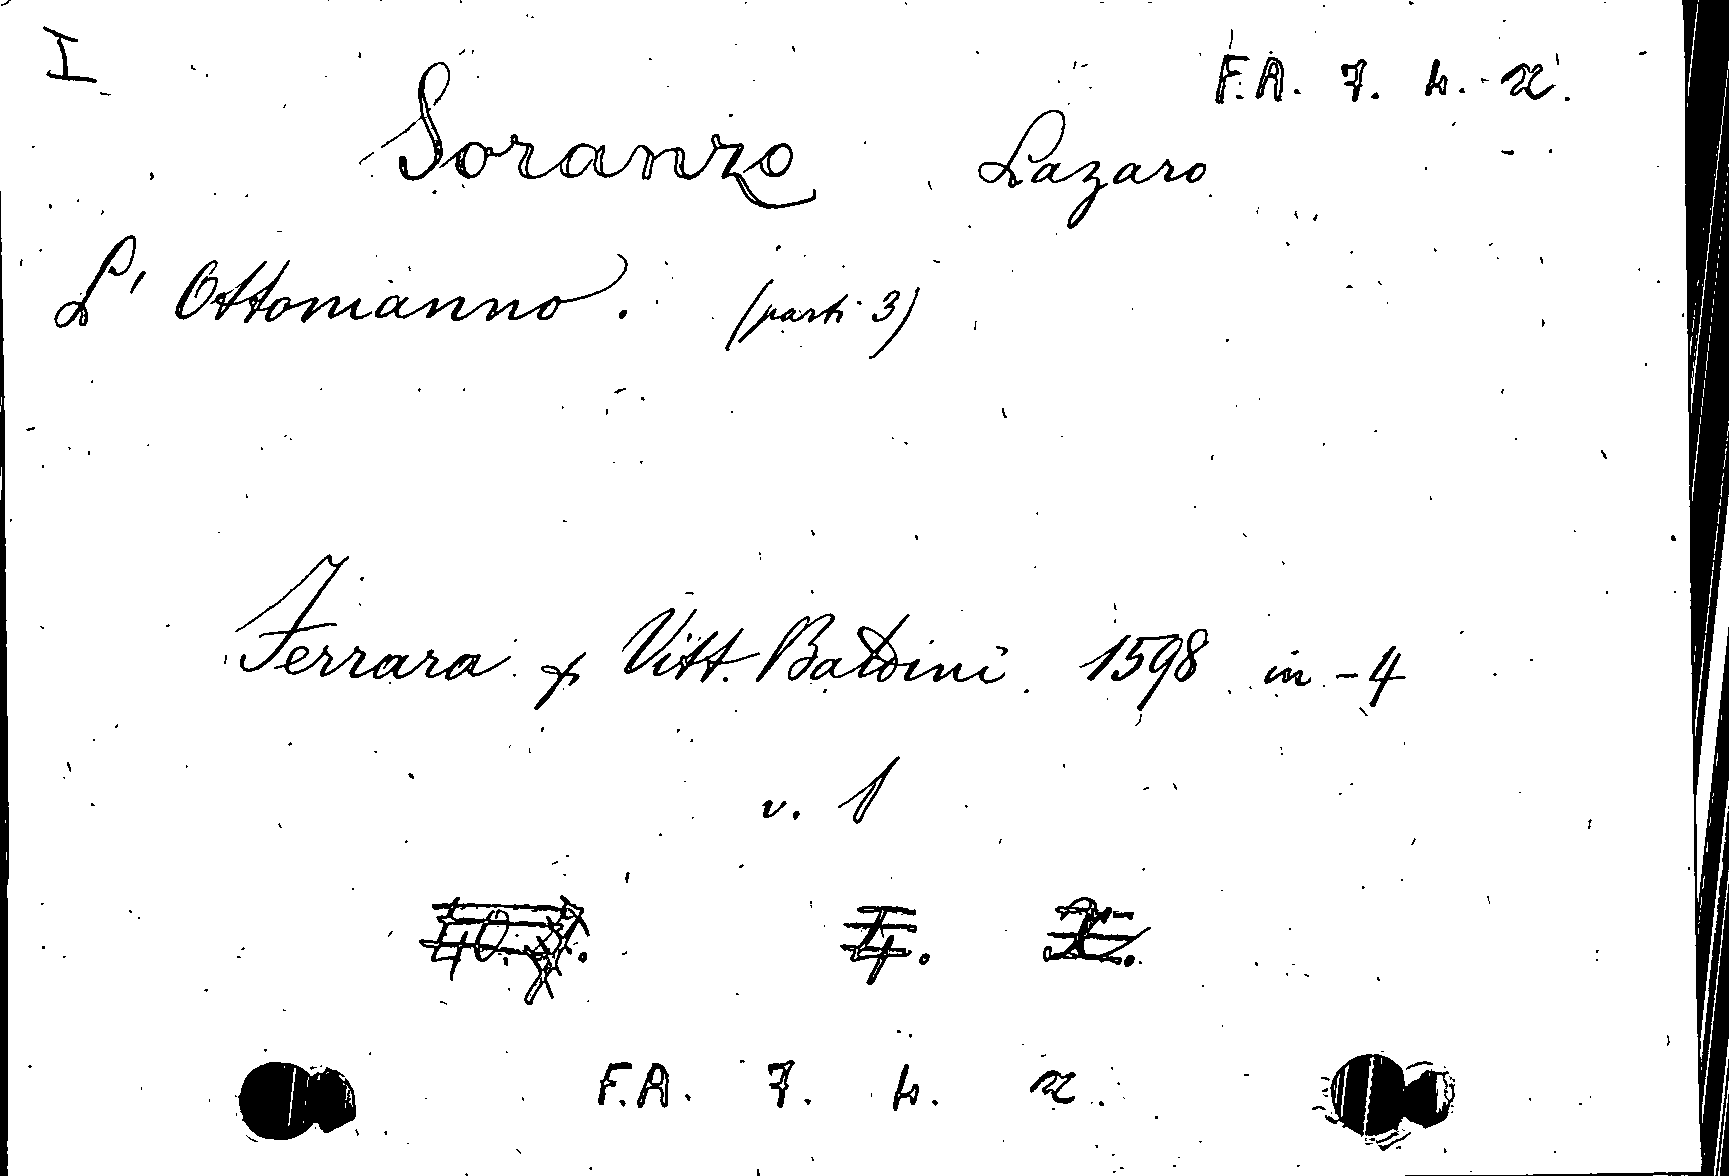 I
F.A. 7. h. x.
Soranzo Lazaro
L' Ottomanno. (parti 3)
Ferrara Vitt. Baldini 1598 in-4
v. 1
4.
F.A. 7. h. x.